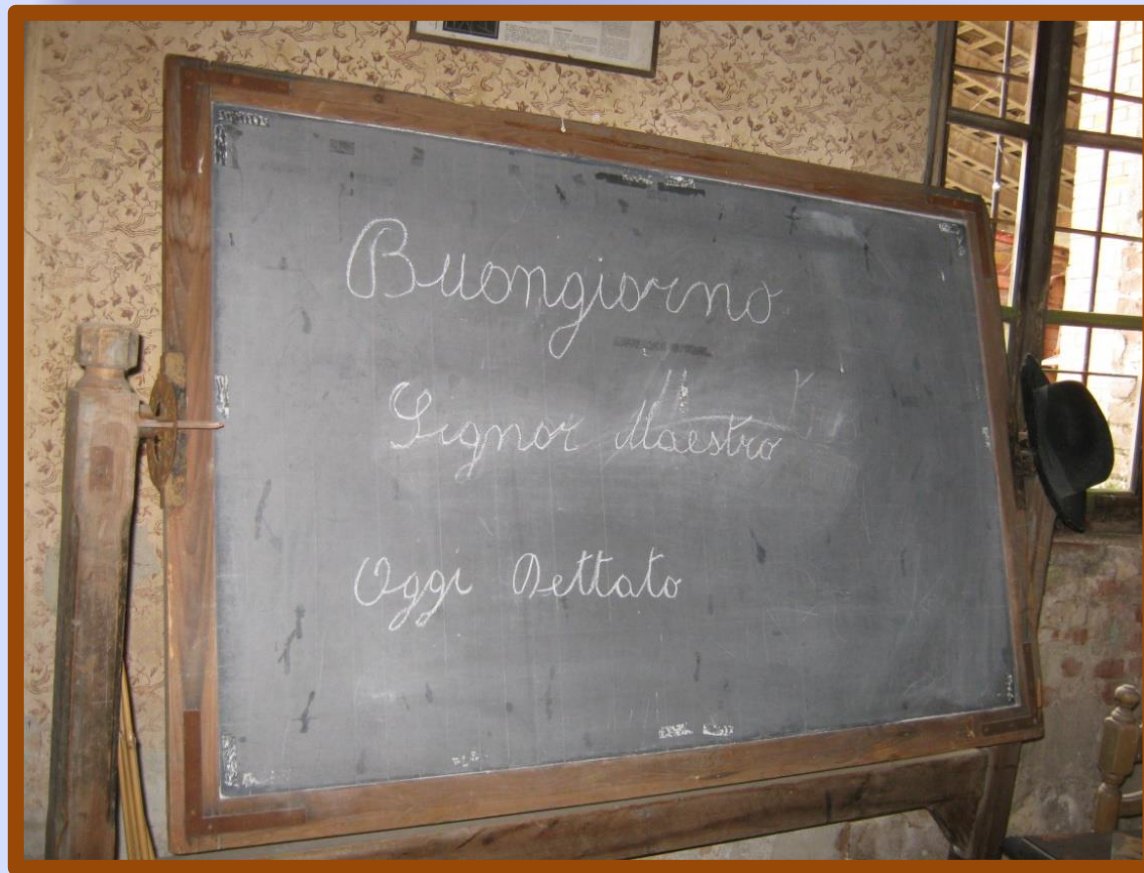 Buongiorno
Signor Maestro
Oggi Dettato